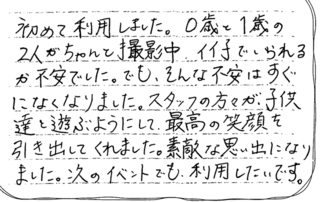 初めて利用しました。0歳と1歳の
2人がちゃんと撮影中 イイ子でいられる
か不安でした。でも、そんな不安はすぐ
になくなりました。スタッフの方々が、子供
達と遊ぶようにして、最高の笑顔を
引き出してくれました。素敵な思い出になり
ました。次のイベントでも、利用したいです。